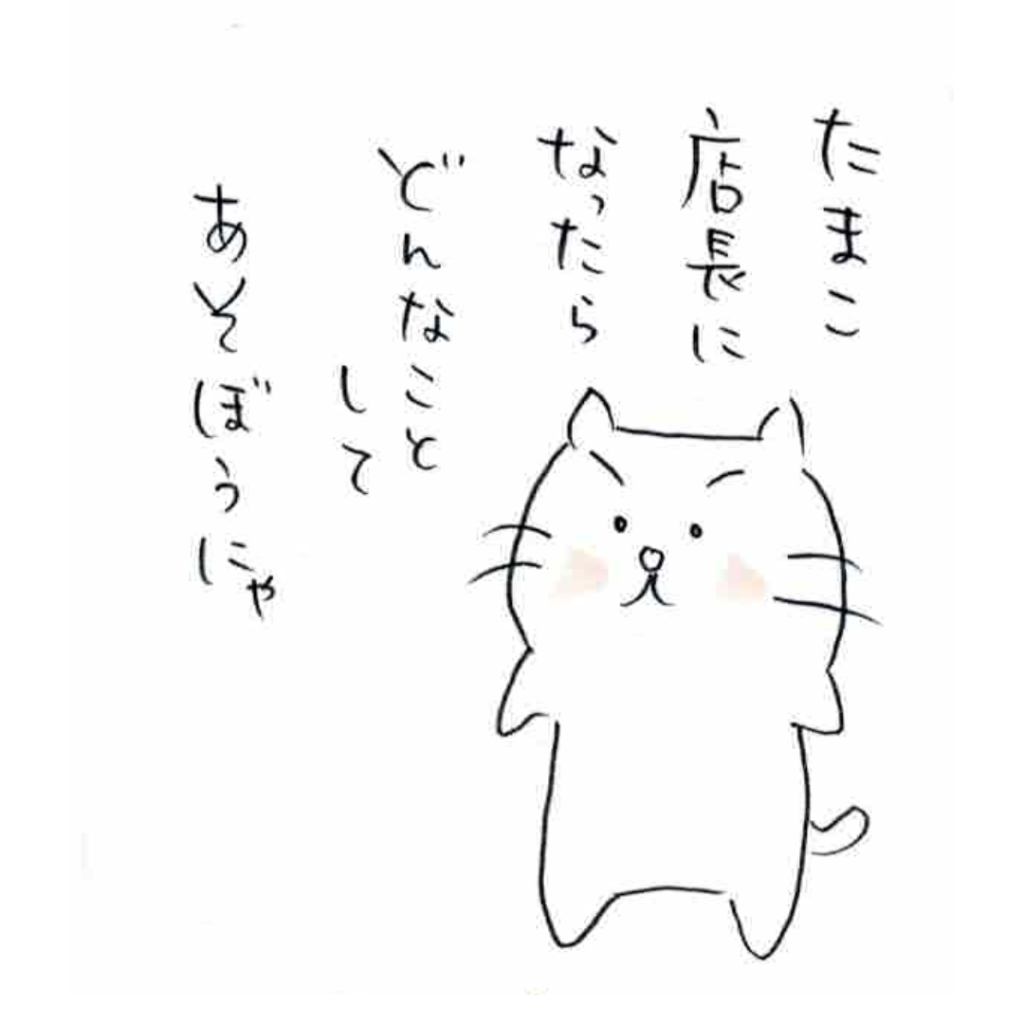 たまこ
店長に
なったら
どんなこと
して
あそぼうにゃ